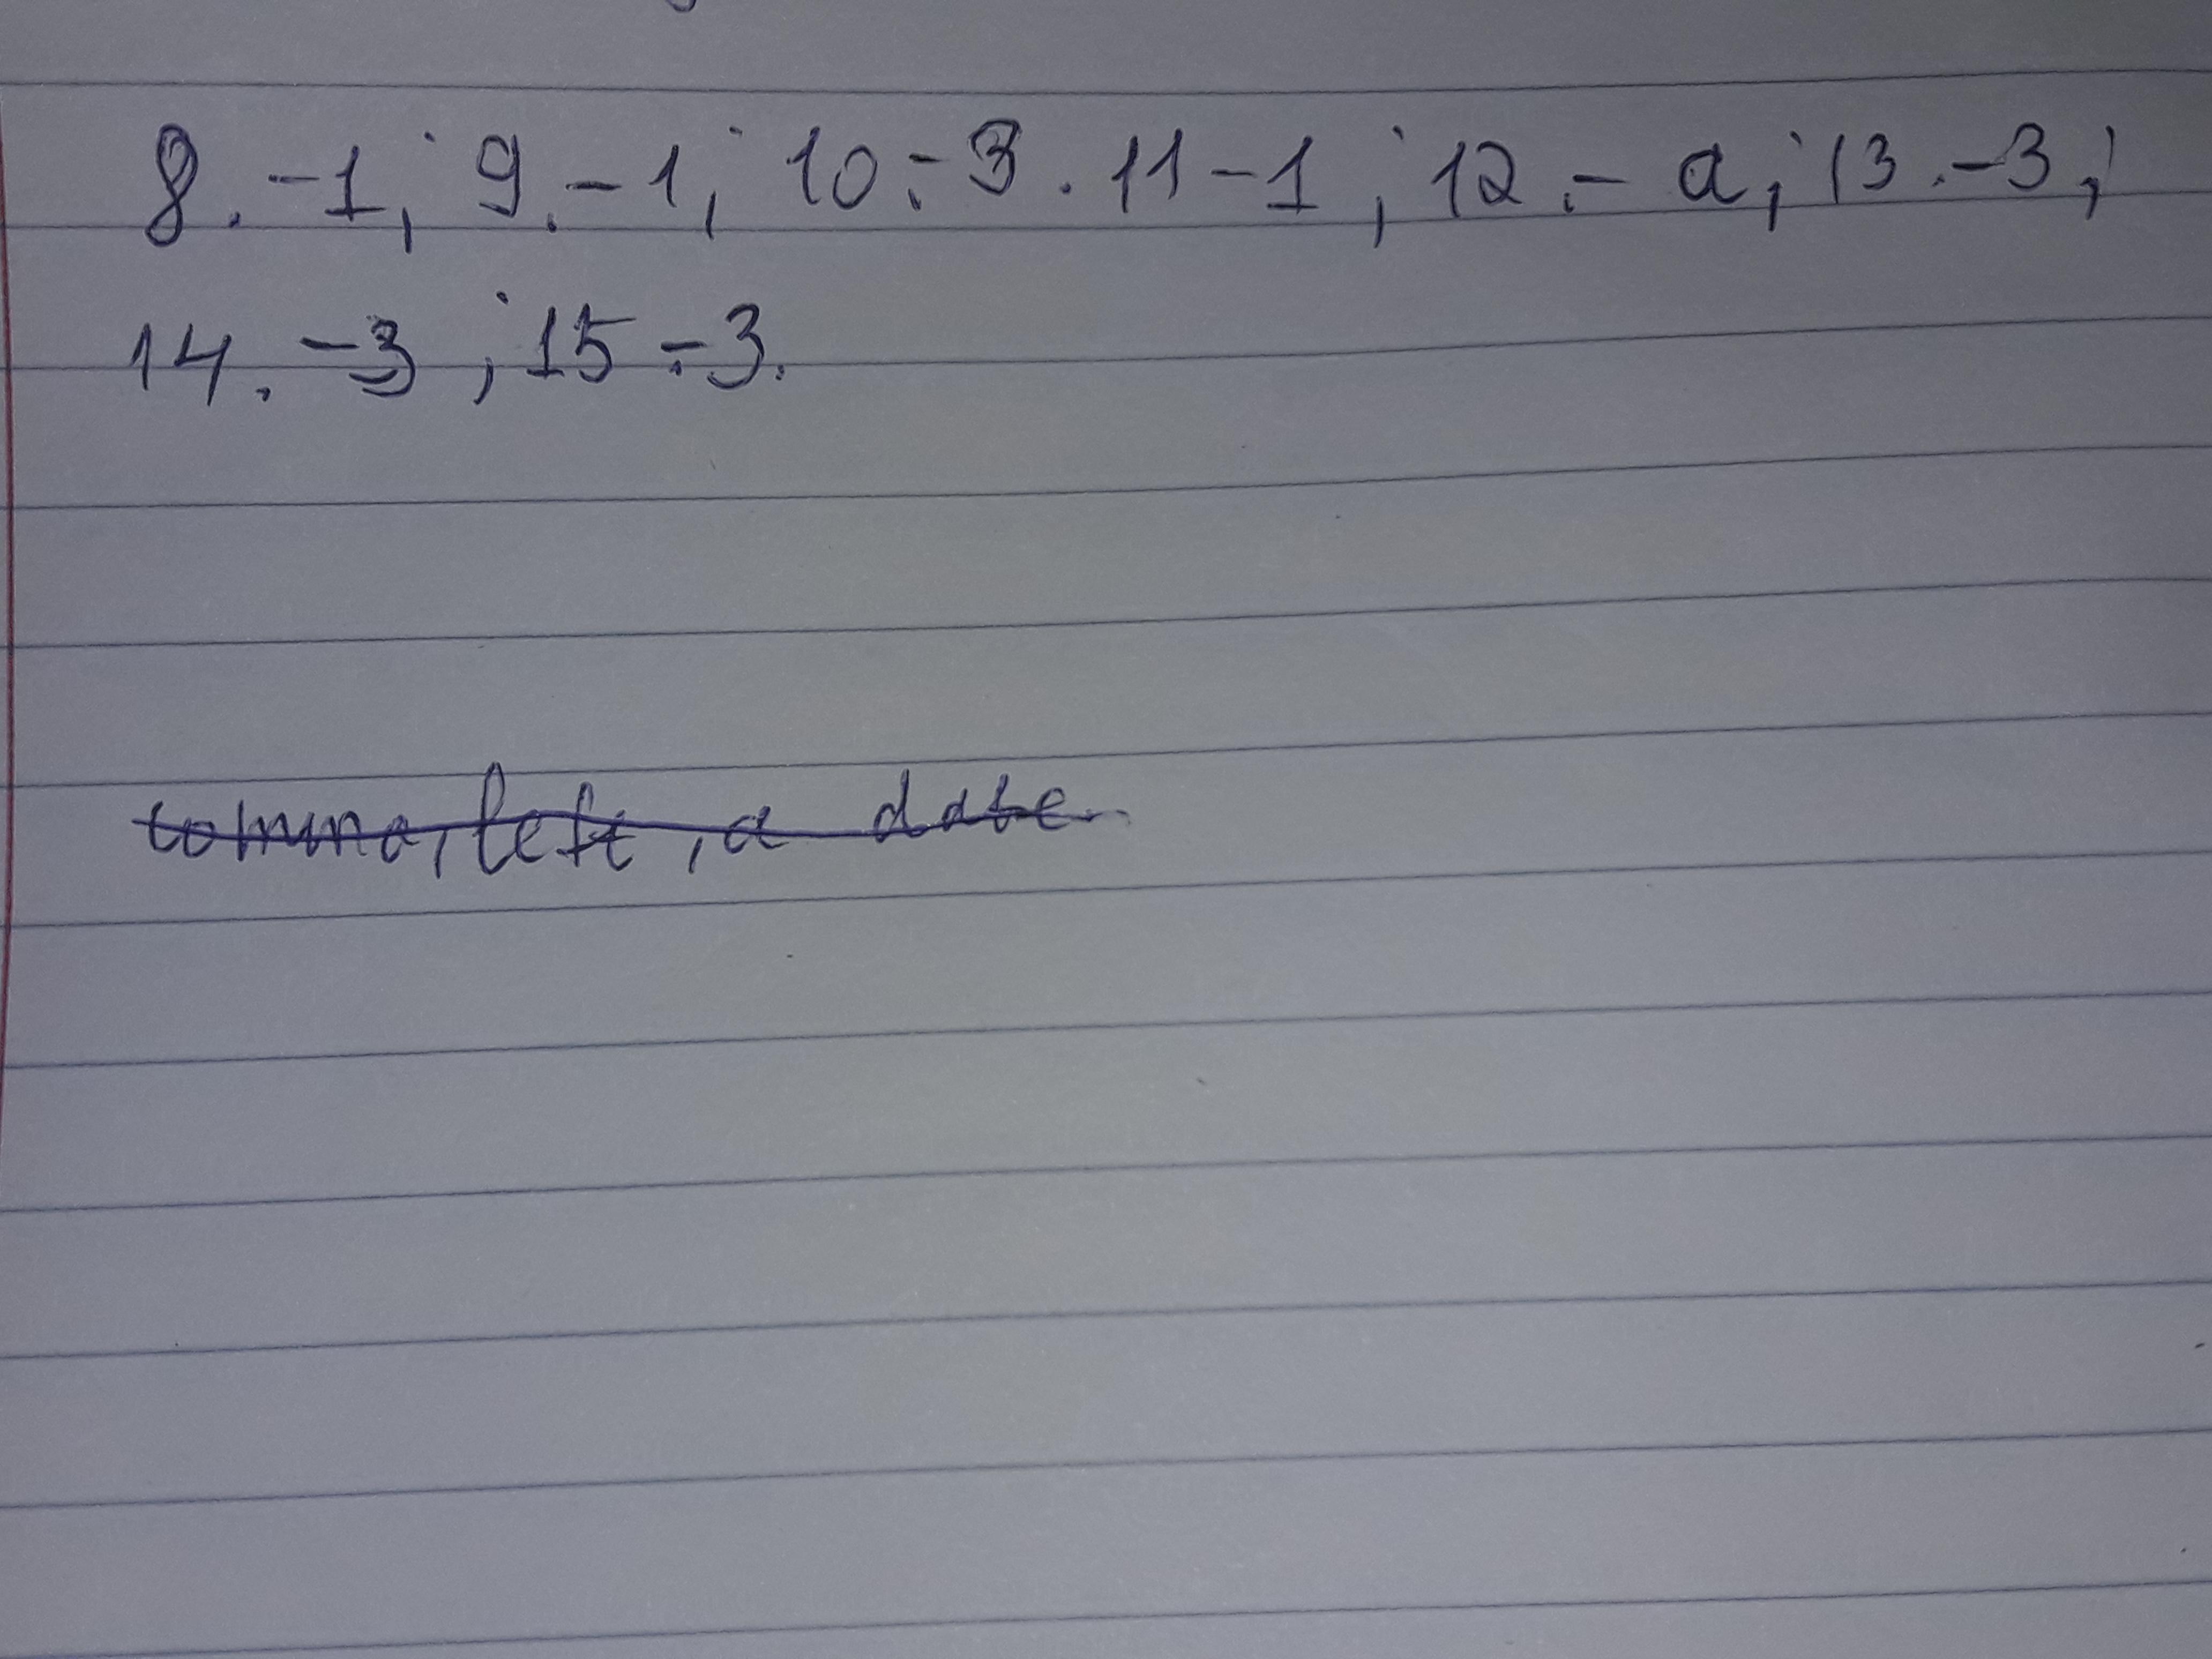 8. -1; 9. -1; 10. - 3. 11 - 1; 12. - a; 13. - 3;
14. - 3; 15. - 3.
comma, left, a date.